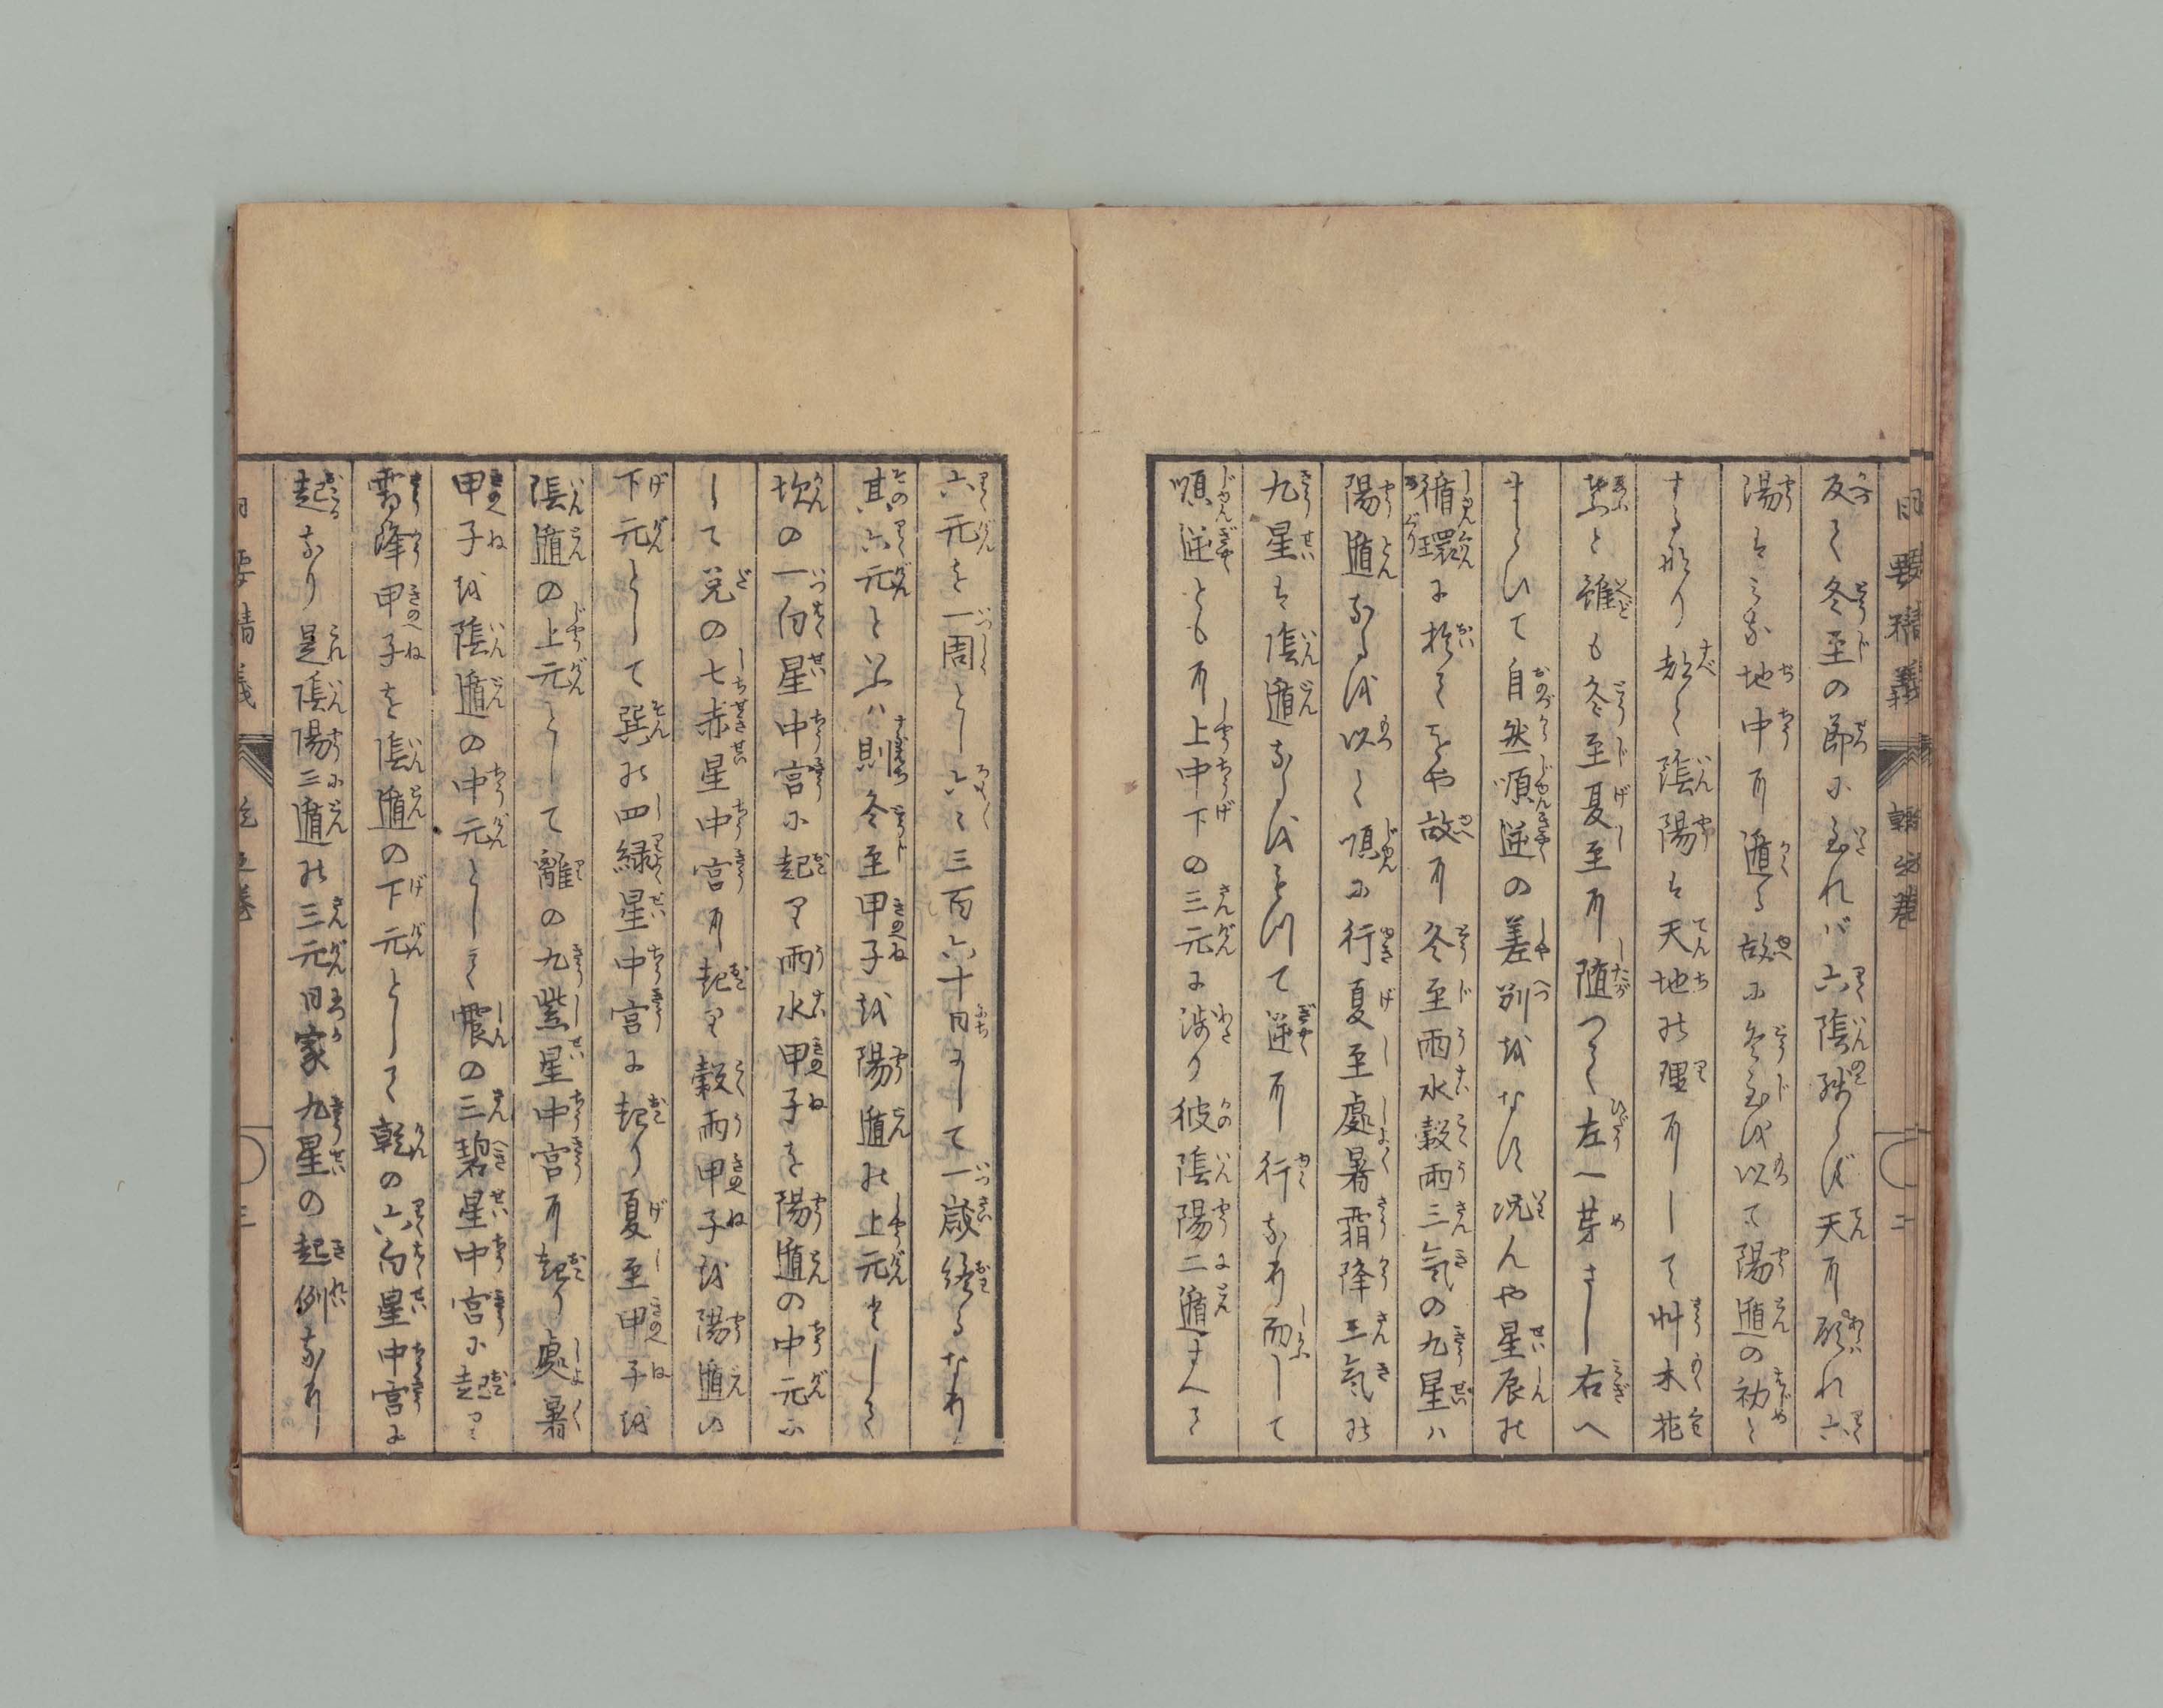 反て冬至の節に至れバ六陰残らず天に顕れ六
陽ハみな地中に遁る故に冬至を以て陽遁の初と
するなり都て陰陽ハ天地の理にして艸木花
葉と雖も冬至夏至に随つて左へ芽さし右へ
まとひて自然順逆の差別をなす況んや星辰の
循環に於てをや故に冬至雨水穀雨三気の九星ハ
陽遁なるを以て順に行夏至處暑霜降三気の
九星ハ陰遁なるをもつて逆に行なり而して
順逆ともに上中下の三元に渉り彼陰陽二遁すべて
六元を一周とし六々三百六十日にして一歳終るなり
其六元と云ハ則冬至甲子を陽遁の上元として
坎の一白星中宮に起り雨水甲子を陽遁の中元に
して兌の七赤星中宮に起り穀雨甲子を陽遁の
下元として巽の四緑星中宮に起り夏至甲子を
陰遁の上元として離の九紫星中宮に起り處暑
甲子を陰遁の中元として震の三碧星中宮に起り
霜降甲子を陰遁の下元として乾の六白星中宮に
起るなり是陰陽二遁の三元日家九星の起例なり
三